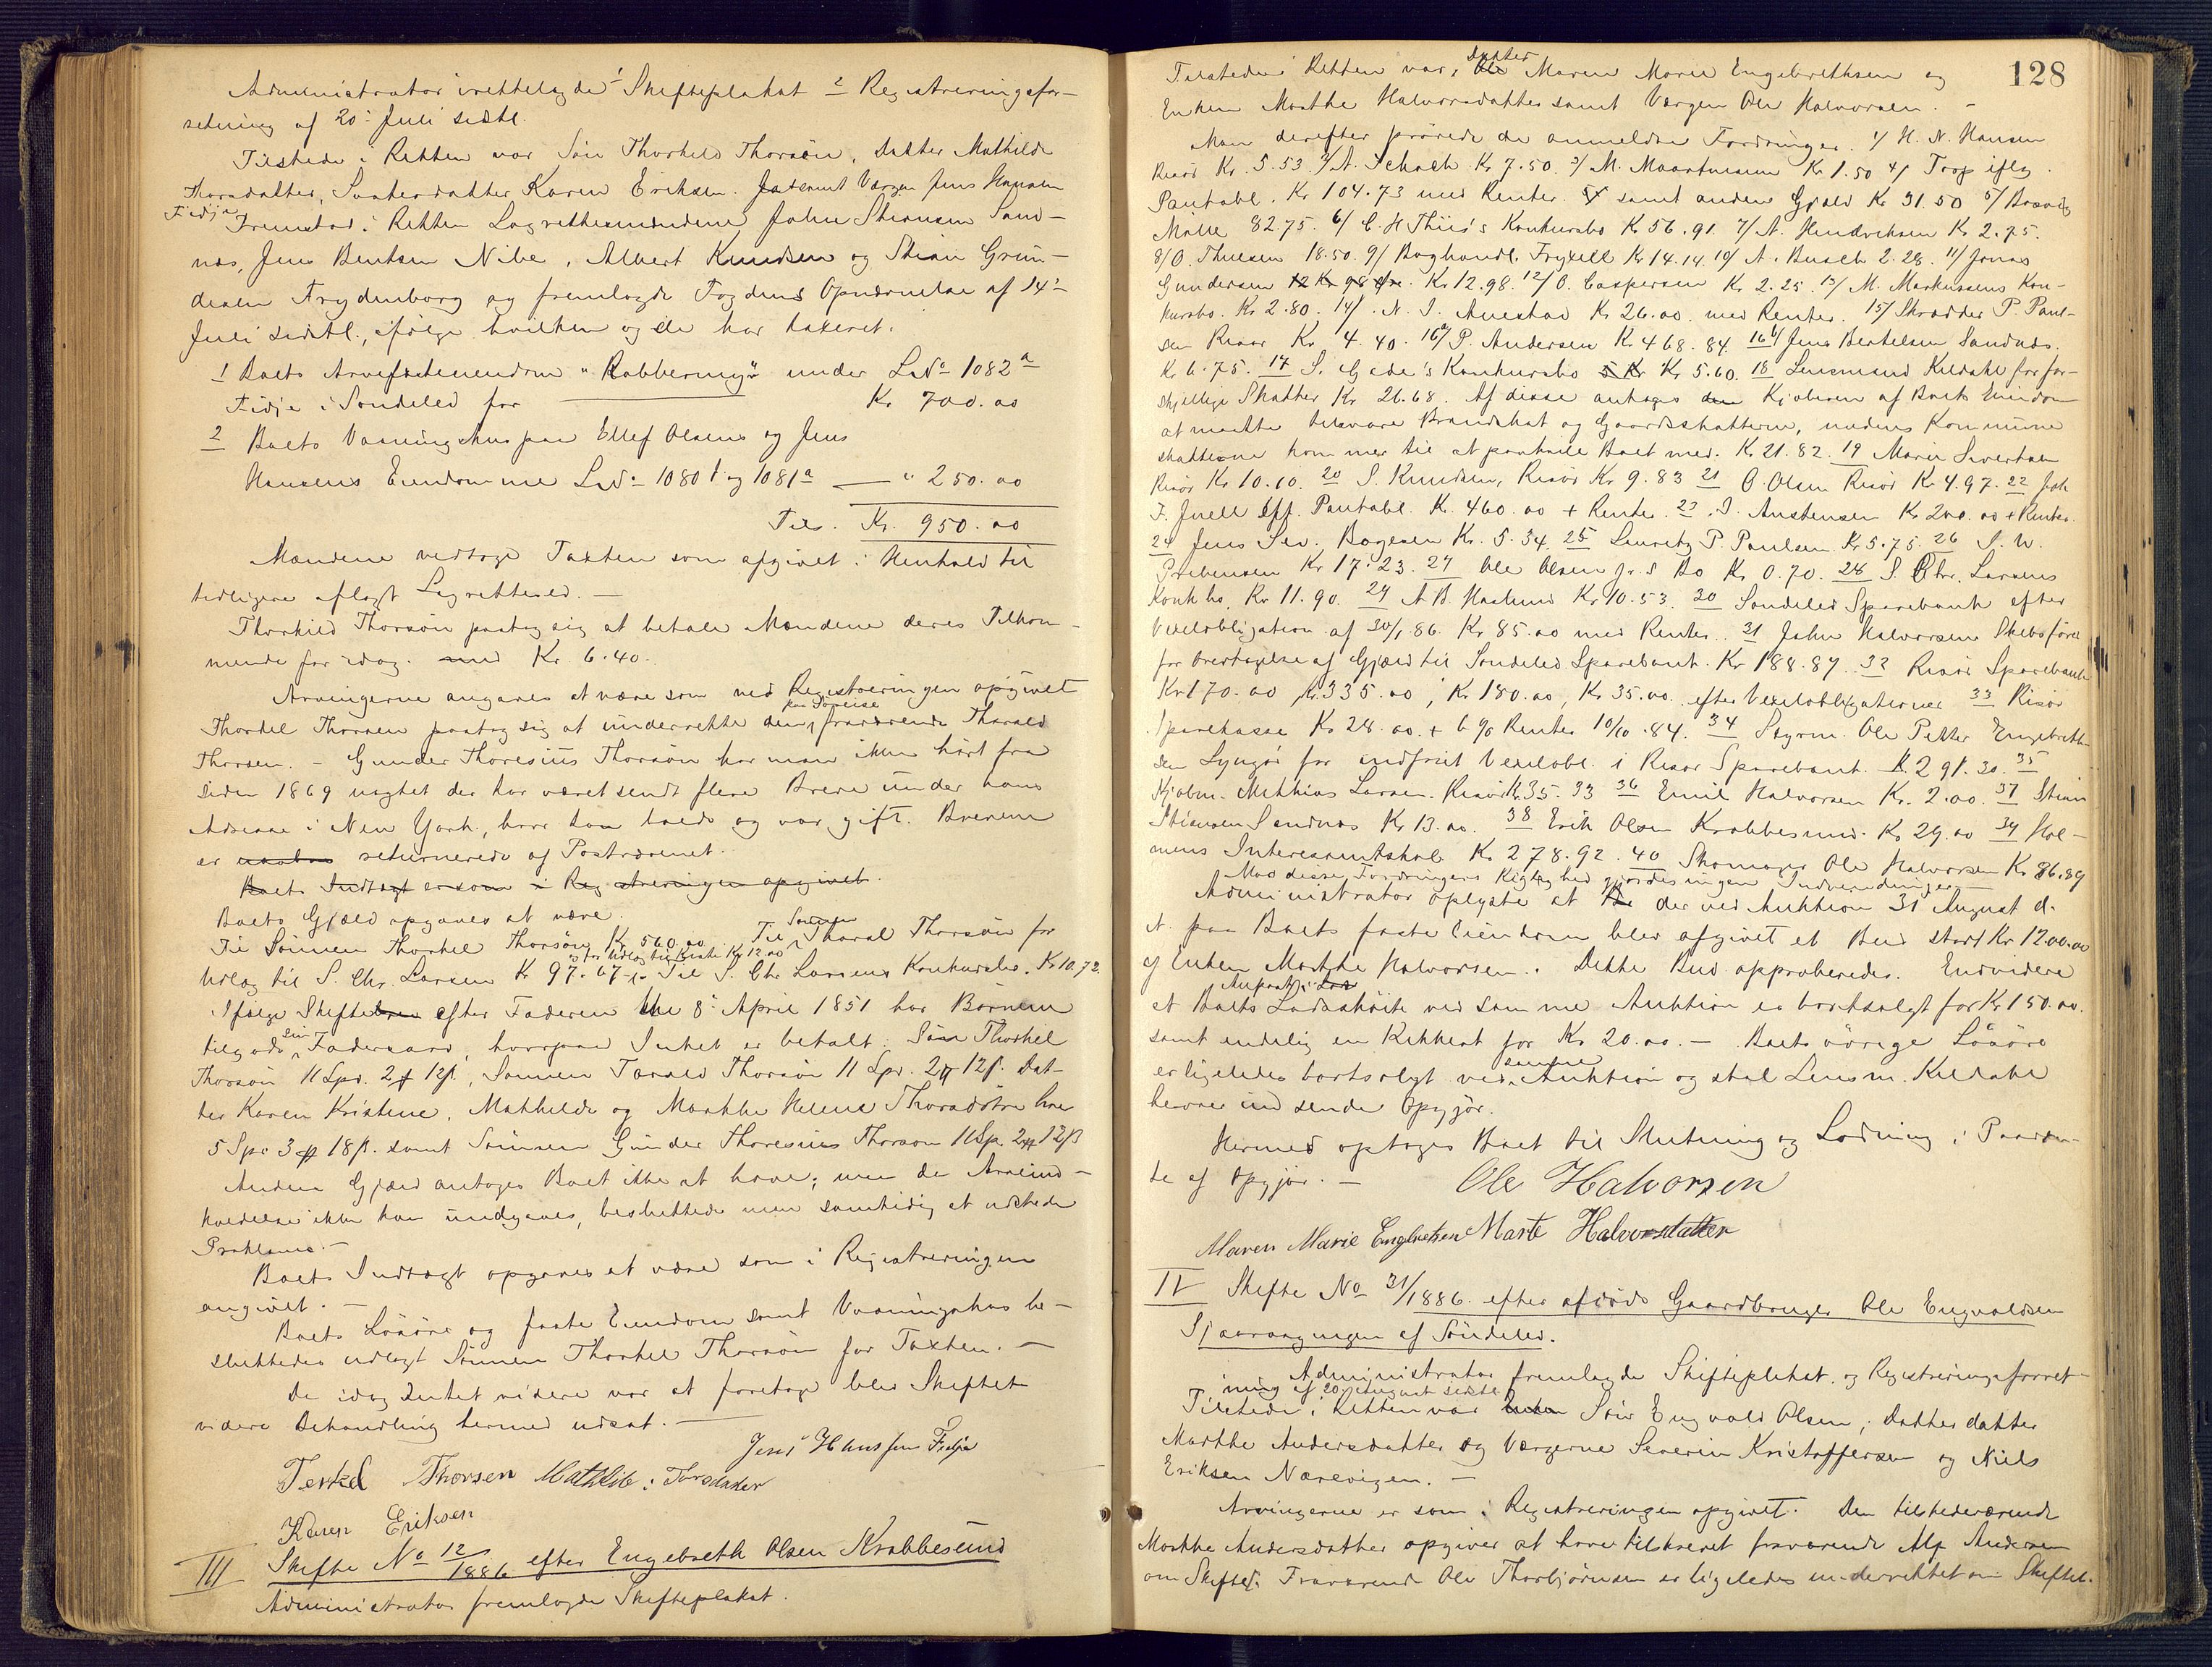 Administrator irettelagde 1 Skifteplakat 2 Registreringsfor-
retning af 20de Juli sidstl.
Tilstede i Retten var Søn Thorkild Thorsøn, Datter Mathilde
Thorsdatter, Sønnedatter Karen Eriksen. samt Værgen Jens Hansen
Fidje
Fremstod i Retten Lagrettesmændene John Stiansen Sand-
næs, Jens Bentsen Nibe, Albert Knudsen og Stian Grun-
desen Frydenborg og fremlagde Fogdens Opnævnelse af 14de
Juli sidstl., ifølge hvilken og de har taxeret.
1 Boets Arvefæsteeiendom "Rabbernuy" under LNo 1082 a
Fidje i Søndeled for Kr 700.00
2 Boets Vaaningshus paa Ellef Olsens og Jens
Hansens Eiendomme LNo 1080 f og 1081 a — " 250.00
Tils. Kr. 950.00
Mændene vedtoge Taxten som afgivet i Henhold til
tidligere aflagt Lagretteed. —
Thorkild Thorsøn paatog sig at betale Mændene deres Tilkom-
mende for idag med Kr 6.40.
Arvingerne angaves at være som ved Registreringen opgivet
Thorkel Thorsen paatog sig at underrette den paa Søreise fraværende Thorald
Thorsen. — Gunder Thoresius Thorsøn har man ikke hørt fra
siden 1869 uagtet der har været sendt flere Breve under hans
Adresse i New York, hvor han boede og var gift. Brevene
er returnerede af Postvæsenet.
Boets Indtægt er som i Registreringen opgivet.
Boets Gjæld opgaves at være.
Til Sønnen Thorkel Thorsøn Kr 560.00 Til Sønnen Thoral Thorsøn for
Udlæg til S. Chr. Larsen Kr 97.67 og for Udlæg til Kiste Kr 12.00 Til S. Chr Larsens Konkursbo. Kr 10.72
Ifølge Skiftebrev efter Faderen 8de April 1851 har Børnene
tilgode sin Fadersarv, hvorpaa Intet er betalt: Søn Thorkil
Thorsøn 11 Spd. 2 # 12 ß., Sønnen Torald Thorsøn 11 Spd. 2 # 12 ß. Dat-
ter Karen Kristine, Mathilde og Marthe Helene Thorsdøtre hver
5 Spd 3 # 18 ß. samt Sønnen Gunder Thoresius Thorson 11 Sp. 2 # 12 ß
Anden Gjæld antoges Boet ikke at have; men da Arveind-
kaldelse ikke kan undgaaes, besluttedes men samtidig at udstede
Proklama. —
Boets Indtægt opgaves at være som i Registreringen
angivet. —
Boets Løsøre og faste Eiendom samt Vaaningshus be-
sluttedes udlagt Sønnen Thorkel Thorsøn for Taxten. —
Da idag Intet videre var at foretage blev Skiftet
videre Behandling hermed udsat. —
Jens Hansen Fidje
Terkel Thorsen Mathilde Torsdater
Karen Eriksen
III Skifte No 12/1886 efter Engebreth Olsen Krabbesund
Administrator fremlagde Skifteplakat.
128
Tilstede i Retten var, Datter Maren Marie Engebrethsen og
Enken Marthe Halvorsdatter samt Værgen Ole Halvorsen. —
Man derefter prøvede de anmeldte Fordringer. 1/ H. N. Hansen
Risør Kr. 5.53. 2/ A. Schach Kr 7.50. 3/ M. Maartmann Kr 1.50 4/ Trop iflg.
Pantobl. Kr 104.73 med Renter. samt anden Gjæld Kr 31.50 5/ Brovigs
Mølle 82.75. 6/ C. H Thiis's Konkursbo Kr 56.91. 7/ A. Hendriksen Kr 2.75.
8/ O. Thuesen 18.50. 9/ Boghandl. Fryxell Kr 14.14. 10/ A. Busch 2.28. 11/ Jonas
Gundersen Kr 12.98. 12/ O. Caspersen Kr 2.25. 13/ M. Markussens Kon-
kursbo. Kr 2.80. 14/ N. J. Anestad Kr 26.00. med Renter. 15/ Skrædder P. Paul-
sen Risør Kr 4.40. 16 a/ P. Andersen Kr 468.84. 16 b/ Jens Bertelsen Sandnæs.
Kr 6.75. 17 S. Gade's Konkursbo Kr 5.60. 18 Lensmand Kildahl for for-
skjellige Skatter Kr 26.68. Af disse antages Kjøberen af Boets Eiendom
at maatte tilsvare Brandskat og Gaardsskatterne, medens Kommune
skatterne kommer til at paahvile Boet med. Kr 21.82. 19 Marie Sivertsen
Risør Kr 10.10. 20 S. Knudsen, Risør Kr 9.83 21 O. Olsen Risør Kr 4.97. 22 Joh
F. Juell iff. Pantobl. Kr. 460.00 + Rente. 23 J. Anstensen Kr 200.00 + Renter.
24 Jens Sev. Bogesen Kr. 5.34. 25 Lauritz P. Paulsen. Kr 5.75. 26 S. W.
Prebensen Kr 17.23. 27 Ole Olsen jr.s Bo Kr 0.70. 28 S. Chr. Larsens
Konkbo. Kr 11.90. 29 A B. Haslund Kr 10.53. 30 Søndeled Sparebank efter
Vexelobligation af 30/1.86. Kr 85.00 med Renter. 31 John Halvorsen Skibsfører
for Overtagelse af Gjæld til Søndeled Sparebank. Kr 188.87. 32 Risør Sparebank
Kr 170.00 Kr 335.00, Kr 180.00, Kr 35.00. efter Vexelobligationer 33 Risør
Sparekasse Kr 28.00. + 6 % Rente 10/10.84. 34 Styrm. Ole Petter Engebreth-
sen Lyngør for indfriet Vexelobl. i Risør Sparebank. Kr. 291.30. 35
Kjøbm. Mathias Larsen. Risør Kr. 35.33 36 Emil Halvorsen Kr. 2.00. 37 Stian
Stiansen Sandnæs Kr 13.00. 38 Erik Olsen Krabbesund. Kr 29.00 39 Hol-
mens Interessentskab Kr 278.92. 40 Skomager Ole Halvorsen Kr 86.89
Mod disse Fordringers Rigtighed gjordes ingen Indvendinger. —
Administrator oplyste at der ved Auktion 31 August d.
A. paa Boets faste Eiendom blev afgivet et Bud stort Kr 1200.00
af Enken Marthe Halvorsen. Dette Bud approberedes. Endvidere
at Boets Anpart i Ladaskøite ved samme Auktion er bortsolgt for Kr 150.00.
samt endelig en Kikkert for Kr 20.00. — Boets øvrige Løsøre
er ligeledes bortsolgt ved samme Auktion og skal Lensm. Kildahl
herom indsende Opgjør.
Hermed optoges Boet til Slutning og Lodning i Paaven-
te af Opgjør. — Ole Halvorsen
Maren Marie Engbretsen Marte Halvorsdatter
IV Skifte No 31/1886. efter afdøde Gaardbruger Ole Engvoldsen
Sjaavaagningen af Søndeled.
Administrator fremlagde Skifteplakat. og Registreringsforret-
ning af 20 August sidstl.
Tilstede i Retten var Søn Engvald Olsen, Datterdatter
Marthe Andersdatter og Værgerne Severin Kristoffersen og Niels
Eriksen Narevigen. —
Arvingerne er som i Registreringen opgivet. Den tilstedeværende
Marthe Andersdatter opgiver at have tilskrevet fraværende Alf Andersen
om Skiftet. Fraværende Ole Thorbjørnsen er ligeledes underrettet om Skiftet.